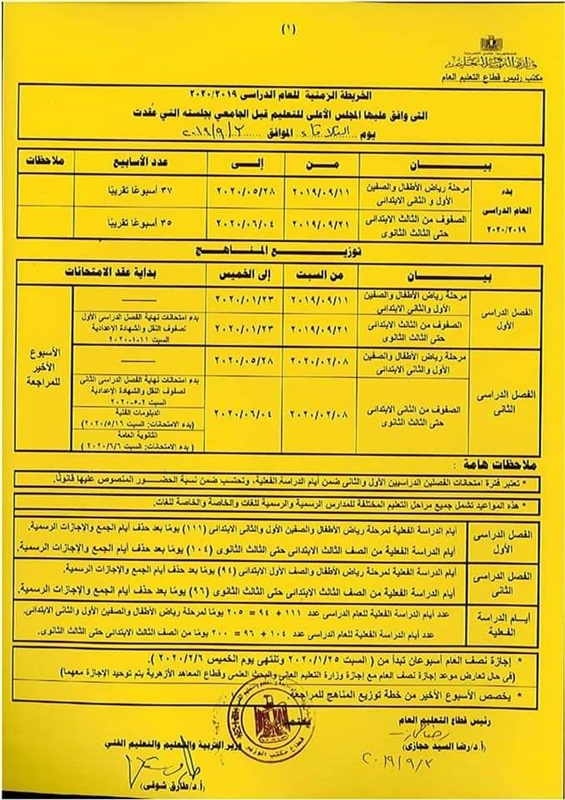 (١)
وزارة التربية والتعليم
مكتب رئيس قطاع التعليم العام
الخريطة الزمنية للعام الدراسى ٢٠٢٠/٢٠١٩
التى وافق عليها المجلس الأعلى للتعليم قبل الجامعي بجلسته التي عُقدت
يوم الثلاثاء الموافق ٢٠١٩/٩/٣
بيان من إلى عدد الأسابيع ملاحظات
بدء العام الدراسى ٢٠٢٠/٢٠١٩
مرحلة رياض الأطفال والصفين الأول و الثانى الابتدائى ٢٠١٩/٠٩/١١ ٢٠٢٠/٠٥/٢٨ ٣٧ أسبوعًا تقريبًا
الصفوف من الثالث الابتدائى حتى الثالث الثانوى ٢٠١٩/٠٩/٢١ ٢٠٢٠/٠٦/٠٤ ٣٥ أسبوعًا تقريبًا
توزيع المناهج
بيان من السبت إلى الخميس بداية عقد الامتحانات
الفصل الدراسى الأول
مرحلة رياض الأطفال والصفين الأول والثانى الابتدائى ٢٠١٩/٠٩/١١ ٢٠٢٠/٠١/٢٣
الصفوف من الثالث الابتدائى حتى الثالث الثانوى ٢٠١٩/٠٩/٢١ ٢٠٢٠/٠١/٢٣
بدء امتحانات نهاية الفصل الدراسى الأول
لصفوف النقل والشهادة الإعدادية
السبت ١١-١-٢٠٢٠
الأسبوع الأخير للمراجعة
الفصل الدراسى الثانى
مرحلة رياض الأطفال والصفين الأول والثانى الابتدائى ٢٠٢٠/٠٢/٠٨ ٢٠٢٠/٠٥/٢٨
الصفوف من الثالث الابتدائى حتى الثالث الثانوى ٢٠٢٠/٠٢/٠٨ ٢٠٢٠/٠٦/٠٤
بدء امتحانات نهاية الفصل الدراسى الثانى
لصفوف النقل والشهادة الإعدادية
السبت ٢-٥-٢٠٢٠
الدبلومات الفنية
(بدء الامتحانات: السبت ٢٠٢٠/٥/١٦)
الثانوية العامة
( بدء الامتحانات: السبت ٢٠٢٠/٦/٦ )
ملاحظات هامة :
* تعتبر فترة امتحانات الفصلين الدراسيين الأول والثانى ضمن أيام الدراسة الفعلية، وتحتسب ضمن نسبة الحضور المنصوص عليها قانونًا.
* هذه المواعيد تشمل جميع مراحل التعليم المختلفة للمدارس الرسمية والرسمية للغات والخاصة والخاصة للغات.
الفصل الدراسى الأول
أيام الدراسة الفعلية لمرحلة رياض الأطفال والصفين الأول والثانى الابتدائى (١١١) يومًا بعد حذف أيام الجمع والإجازات الرسمية.
أيام الدراسة الفعلية من الصف الثالث الابتدائى حتى الثالث الثانوى (١٠٤) يومًا بعد حذف أيام الجمع والإجازات الرسمية.
الفصل الدراسى الثانى
أيام الدراسة الفعلية لمرحلة رياض الأطفال والصف الأول الابتدائى (٩٤) يومًا بعد حذف أيام الجمع والإجازات الرسمية.
أيام الدراسة الفعلية من الصف الثالث الابتدائى حتى الثالث الثانوى (٩٦) يومًا بعد حذف أيام الجمع والإجازات الرسمية.
أيام الدراسة الفعلية
عدد أيام الدراسة الفعلية للعام الدراسى عدد ١١١ + ٩٤ = ٢٠٥ يومًا لمرحلة رياض الأطفال والصفين الأول والثانى الابتدائى.
عدد أيام الدراسة الفعلية للعام الدراسى عدد ١٠٤ + ٩٦ = ٢٠٠ يومًا من الصف الثالث الابتدائى حتى الثالث الثانوى.
* إجازة نصف العام أسبوعان تبدأ من ( السبت ٢٠٢٠/١/٢٥ وتنتهى يوم الخميس ٢٠٢٠/٢/٦ ).
(فى حال تعارض موعد إجازة نصف العام مع إجازة وزارة التعليم العالى والبحث العلمى وقطاع المعاهد الأزهرية يتم توحيد الإجازة معهما)
* يخصص الأسبوع الأخير من خطة توزيع المناهج للمراجعة
رئيس قطاع التعليم العام
(أ.د/رضا السيد حجازى)
٢٠١٩/٩/٣
يعتمد
وزير التربية والتعليم والتعليم الفنى
(أ.د/طارق شوقى)